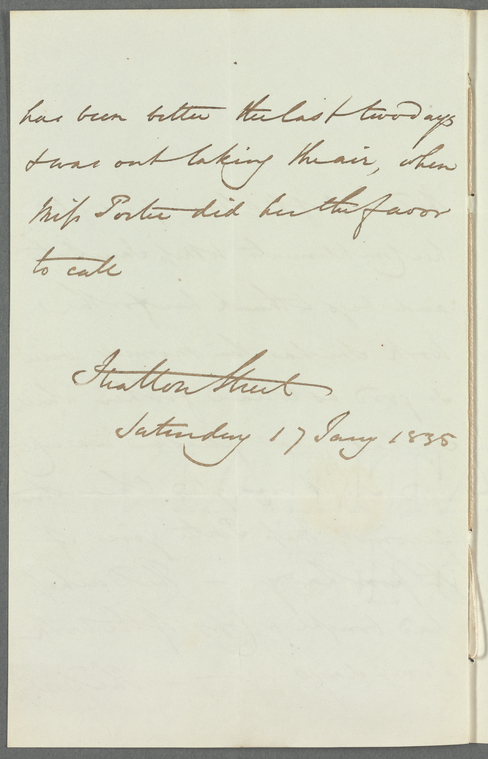 has been better the last two days
& was out taking the air, when
Miss Porter did her the favor
to call
Stratton Street
Saturday 17 Jany 1835